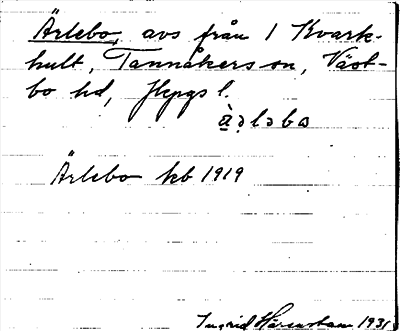 Ärlebo, avs från 1 Kvark-
hult, Tannåkers sn, Väst-
bo hd, Jkpgs l.
Ärlebo kb 1919
Ingrid 1931